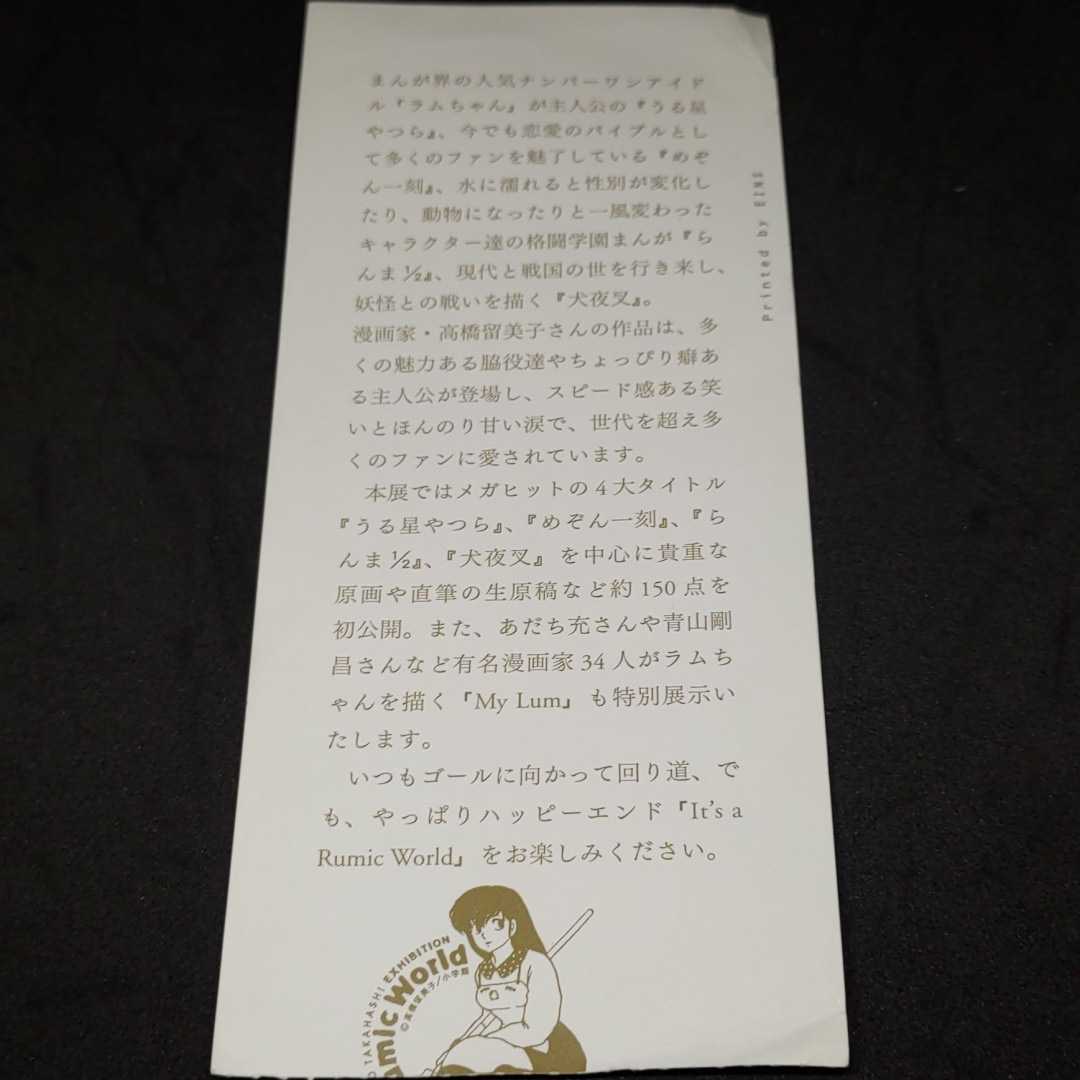 まんが界の人気ナンバーワンアイド
ル『ラムちゃん』が主人公の『うる星
やつら』、今でも恋愛のバイブルとし
て多くのファンを魅了している『めぞ
ん一刻』、水に濡れると性別が変化し
たり、動物になったりと一風変わった
キャラクター達の格闘学園まんが『ら
んま½』、現代と戦国の世を行き来し、
妖怪との戦いを描く『犬夜叉』。
漫画家・高橋留美子さんの作品は、多
くの魅力ある脇役達やちょっぴり癖あ
る主人公が登場し、スピード感ある笑
いとほんのり甘い涙で、世代を超え多
くのファンに愛されています。
本展ではメガヒットの4大タイトル
『うる星やつら』、『めぞん一刻』、『ら
んま½』、『犬夜叉』を中心に貴重な
原画や直筆の生原稿など約150点を
初公開。また、あだち充さんや青山剛
昌さんなど有名漫画家34人がラムち
ゃんを描く『My Lum』も特別展示い
たします。
いつもゴールに向かって回り道、で
も、やっぱりハッピーエンド『It's a
Rumic World』をお楽しみください。
printed by EINS
O TAKAHASHI EXHIBITION
umic World
©高橋留美子/小学館